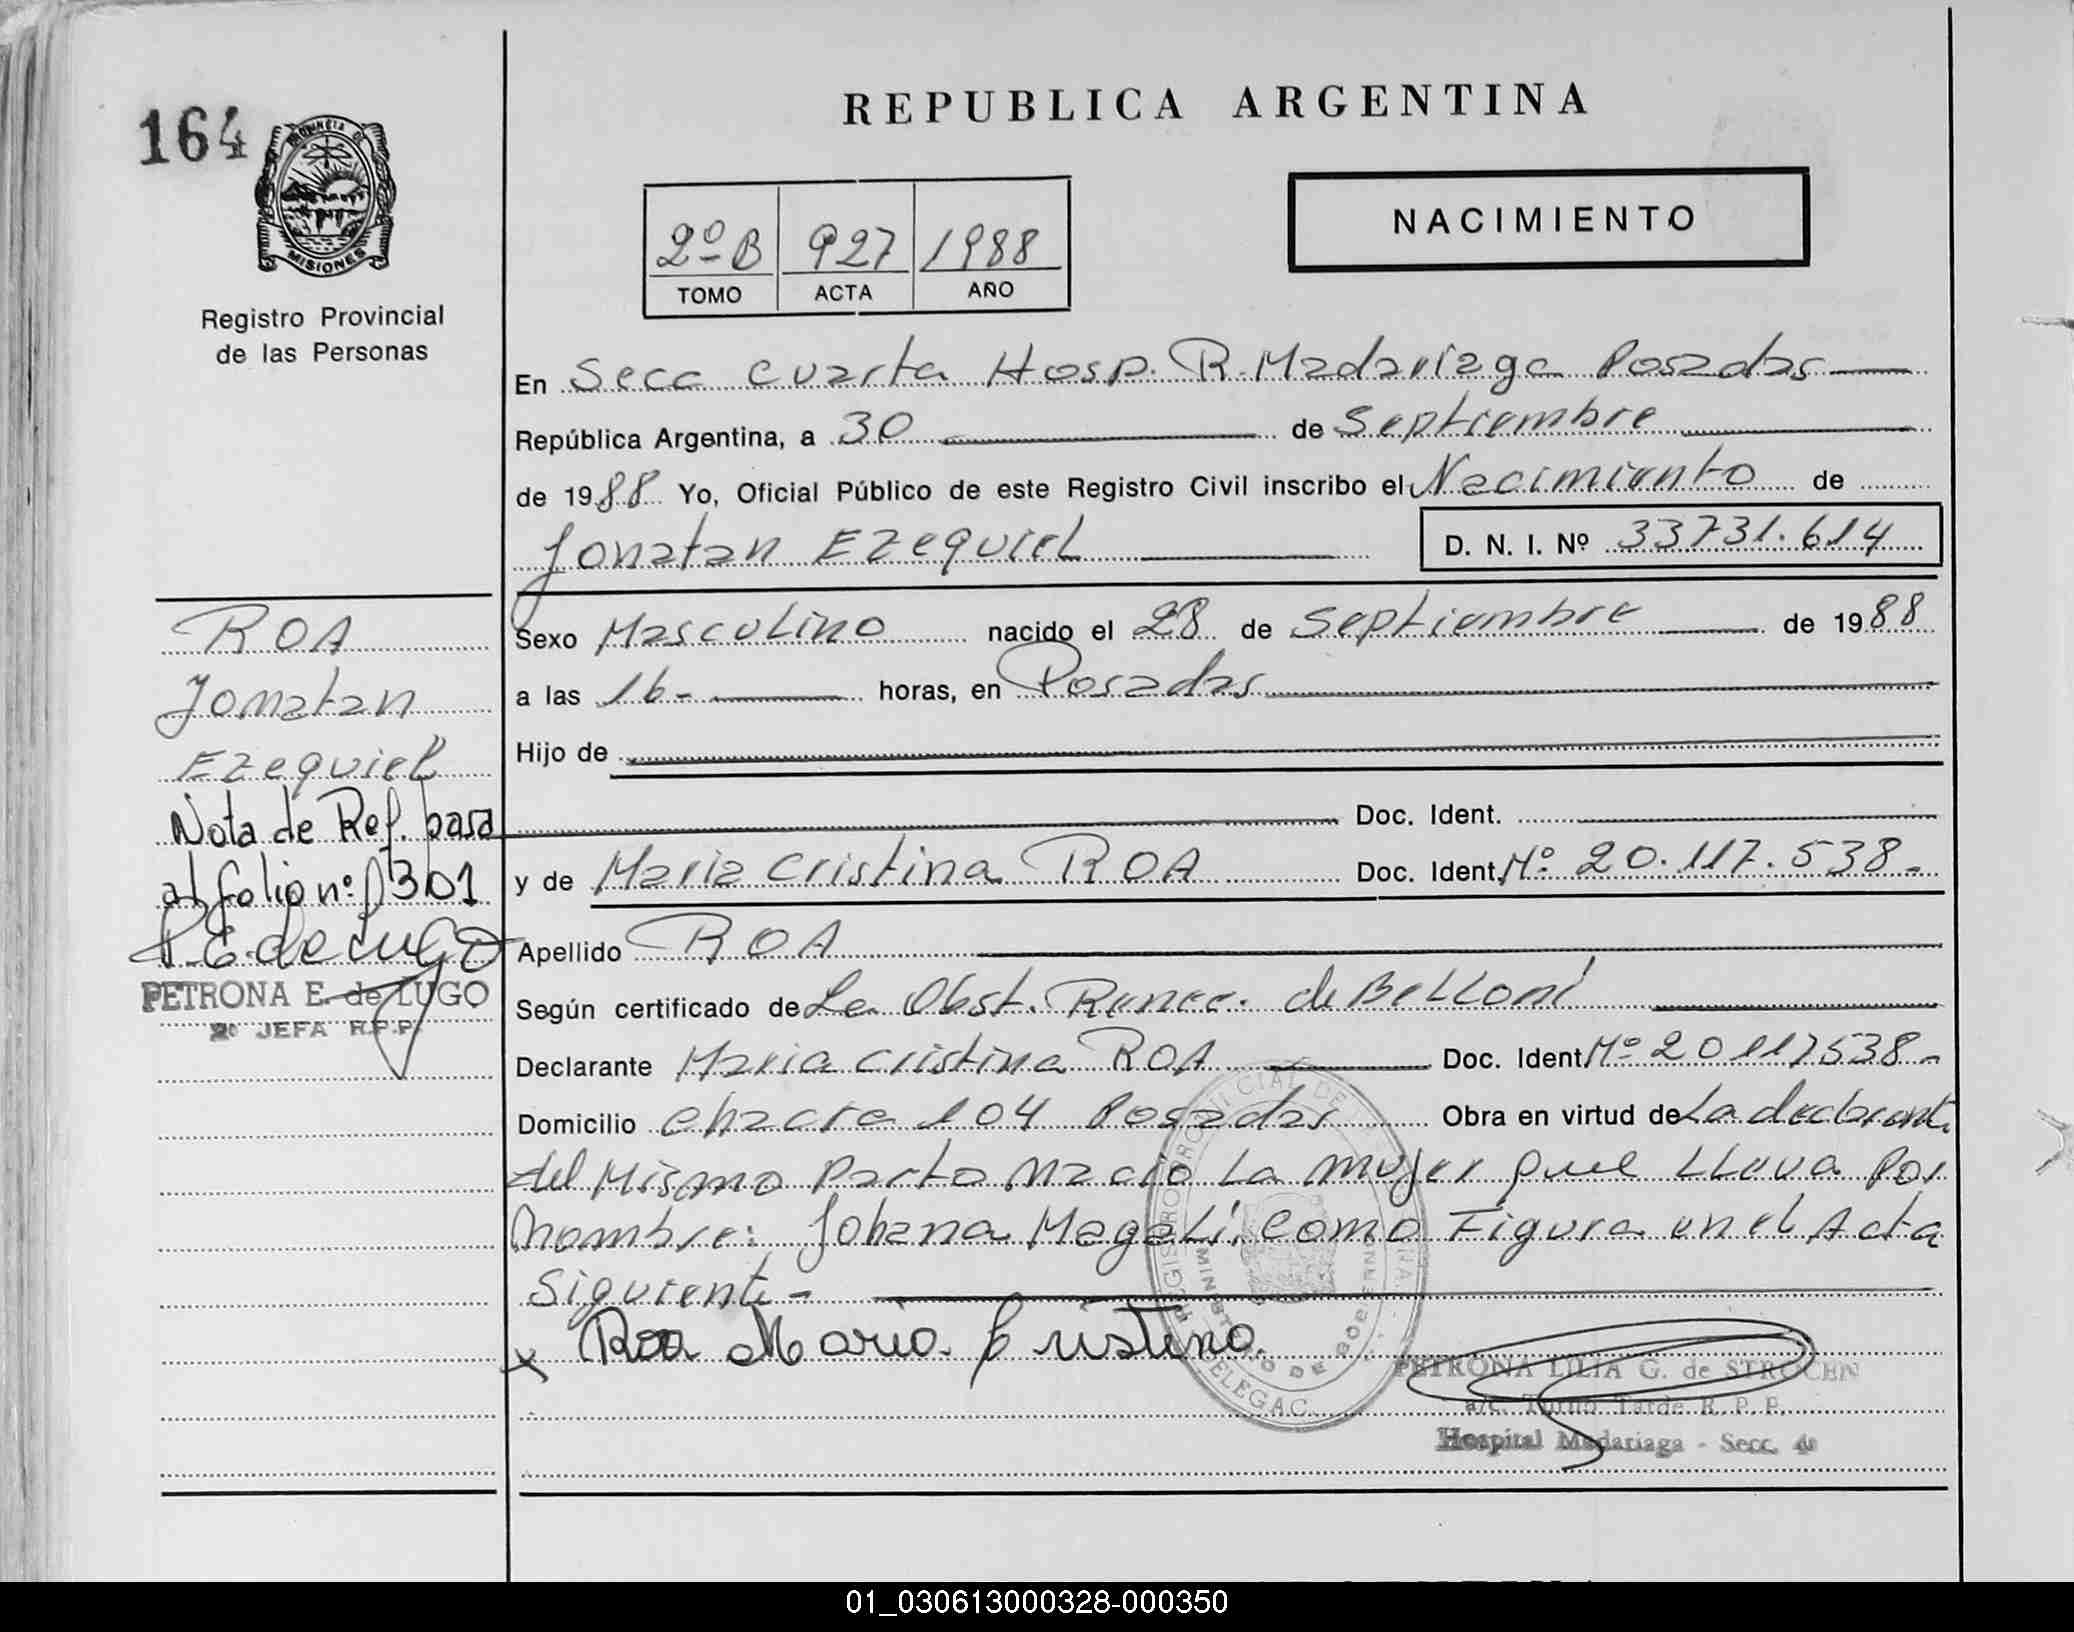 164
PROVINCIA DE
MISIONES
Registro Provincial
de las Personas
REPUBLICA ARGENTINA
2º B 927 1988
TOMO ACTA AÑO
NACIMIENTO
En Secc cuarta Hosp. R. Madariaga Posadas
República Argentina, a 30 de Septiembre
de 1988 Yo, Oficial Público de este Registro Civil inscribo el Nacimiento de
Jonatan Ezequiel D. N. I. Nº 33731.614
ROA
Jonatan
Ezequiel
Nota de Ref. pasa
al folio nº 301
P. E. de Lugo
PETRONA E. de LUGO
2º JEFA R.P.P.
Sexo Masculino nacido el 28 de Septiembre de 1988
a las 16- horas, en Posadas
Hijo de
Doc. Ident.
y de Maria Cristina ROA Doc. Ident. Nº 20.117.538-
Apellido ROA
Según certificado de La Obst. de Belloni
Declarante Maria Cristina ROA Doc. Ident. Nº 20117538-
Domicilio chacra 104 Posadas Obra en virtud de La declarante
del Mismo Parto Nació La mujer que LLeva Por
Nombre: Johana Magali. Como Figura en el Acta
Siguiente-
x Roa Maria Cristina
PETRONA LILIA G. de STROCEN
a/c. Turno Tarde R. P. P.
Hospital Madariaga - Secc. 4a
01_030613000328-000350